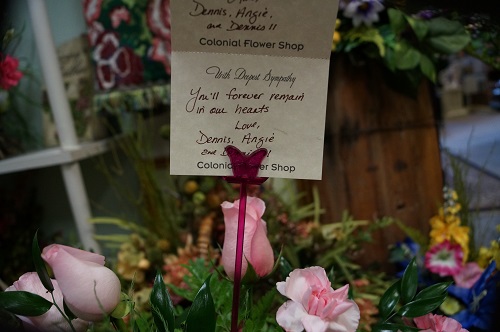 Dennis, Angie,
and Dennis II
Colonial Flower Shop
With Deepest Sympathy
You'll forever remain
in our hearts
Love,
Dennis, Angie
and II
Colonial Flower Shop